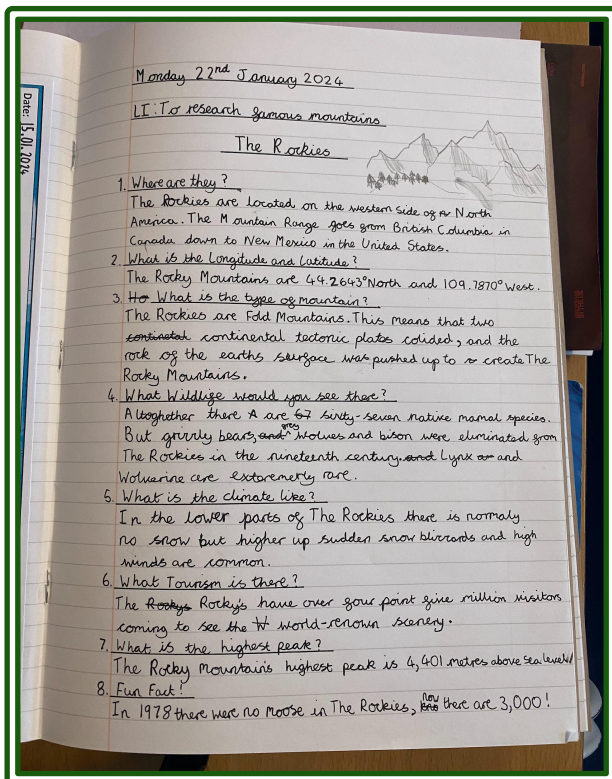 Date: 15.01.2024
Monday 22nd January 2024
LI: To research famous mountains
The Rockies
1. Where are they?
The Rockies are located on the western side of North
America. The Mountain Range goes from British Columbia in
Canada down to New Mexico in the United States.
2. What is the Longitude and Latitude?
The Rocky Mountains are 44.2643°North and 109.7870°West.
3. Ho What is the type of mountain?
The Rockies are Fold Mountains. This means that two
continetal continental tectonic plates colided, and the
rock of the earths surface was pushed up to create The
Rocky Mountains.
4. What Wildlife would you see there?
Altoghether there A are 67 sixty-seven native mamal species.
But grizzly bears, and grey wolves and bison were eliminated from
The Rockies in the nineteenth century. and Lynx and
Wolverine are extoremetly rare.
5. What is the climate like?
In the lower parts of The Rockies there is normaly
no snow but higher up sudden snow blizzards and high
winds are common.
6. What Tourism is there?
The Rockys Rocky's have over four point five million visitors
coming to see the W world-renown scenery.
7. What is the highest peak?
The Rocky Mountain's highest peak is 4,401 metres above sea level
8. Fun Fact!
In 1978 there were no moose in The Rockies, now there are 3,000!